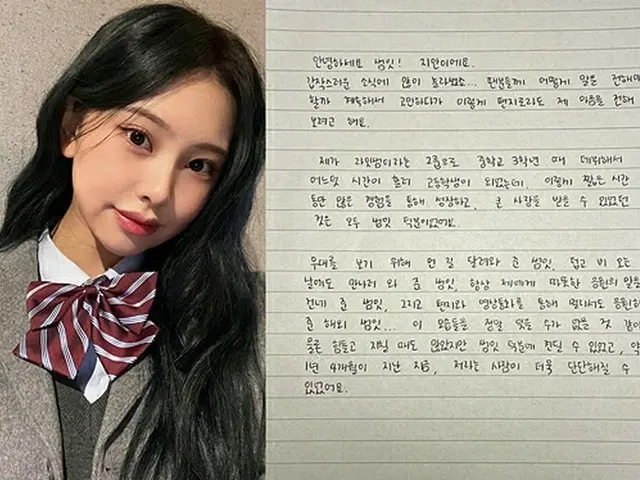 안녕하세요 범잇! 지안이에요.
갑작스러운 소식에 많이 놀라셨죠... 팬분들께 어떻게 말을 전해야
할까 계속해서 고민하다가 이렇게 편지로라도 제 마음을 전해
보려고 해요.
제가 라임범이라는 그룹으로 중학교 3학년 때 데뷔해서
어느덧 시간이 흘러 고등학생이 되었는데, 이렇게 짧은 시간
동안 많은 경험을 통해 성장하고, 큰 사랑을 받을 수 있었던
것은 모두 범잇 덕분이었어요.
무대를 보기 위해 먼 길 달려와 준 범잇, 덥고 비 오는
날에도 만나러 와 준 범잇, 항상 제에게 따뜻한 응원의 말을
건네 준 범잇, 그리고 편지와 영상통화를 통해 멀리서도 응원해
준 해외 범잇... 이 모습들을 정말 잊을 수가 없을 것 같아
물론 힘들고 지칠 때도 많았지만 범잇 덕분에 견딜 수 있었고, 약
1년 4개월이 지난 지금, 저라는 사람이 더욱 단단해질 수
있었어요.